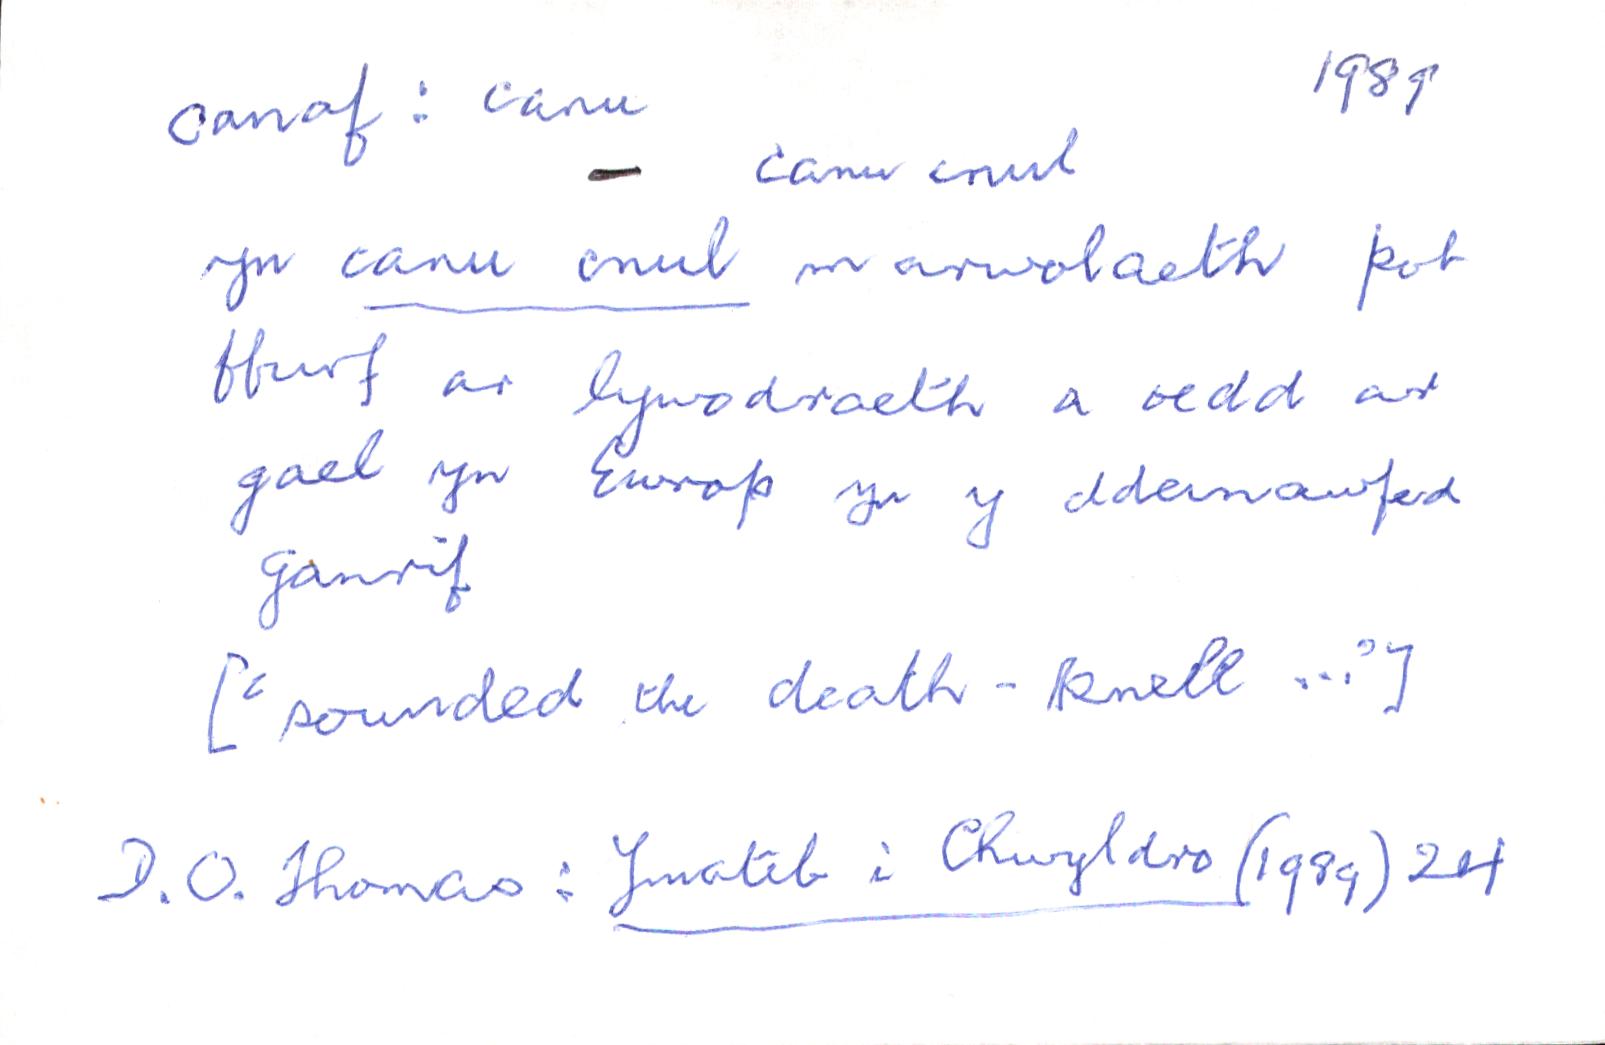 canaf : canu 1989
– canu cnul
yn canu cnul marwolaeth pob
ffurf ar lywodraeth a oedd ar
gael yn Ewrop yn y ddeunawfed
ganrif
[“sounded the death-knell ...”]
D. O. Thomas : Ymateb i Chwyldro (1989) 24